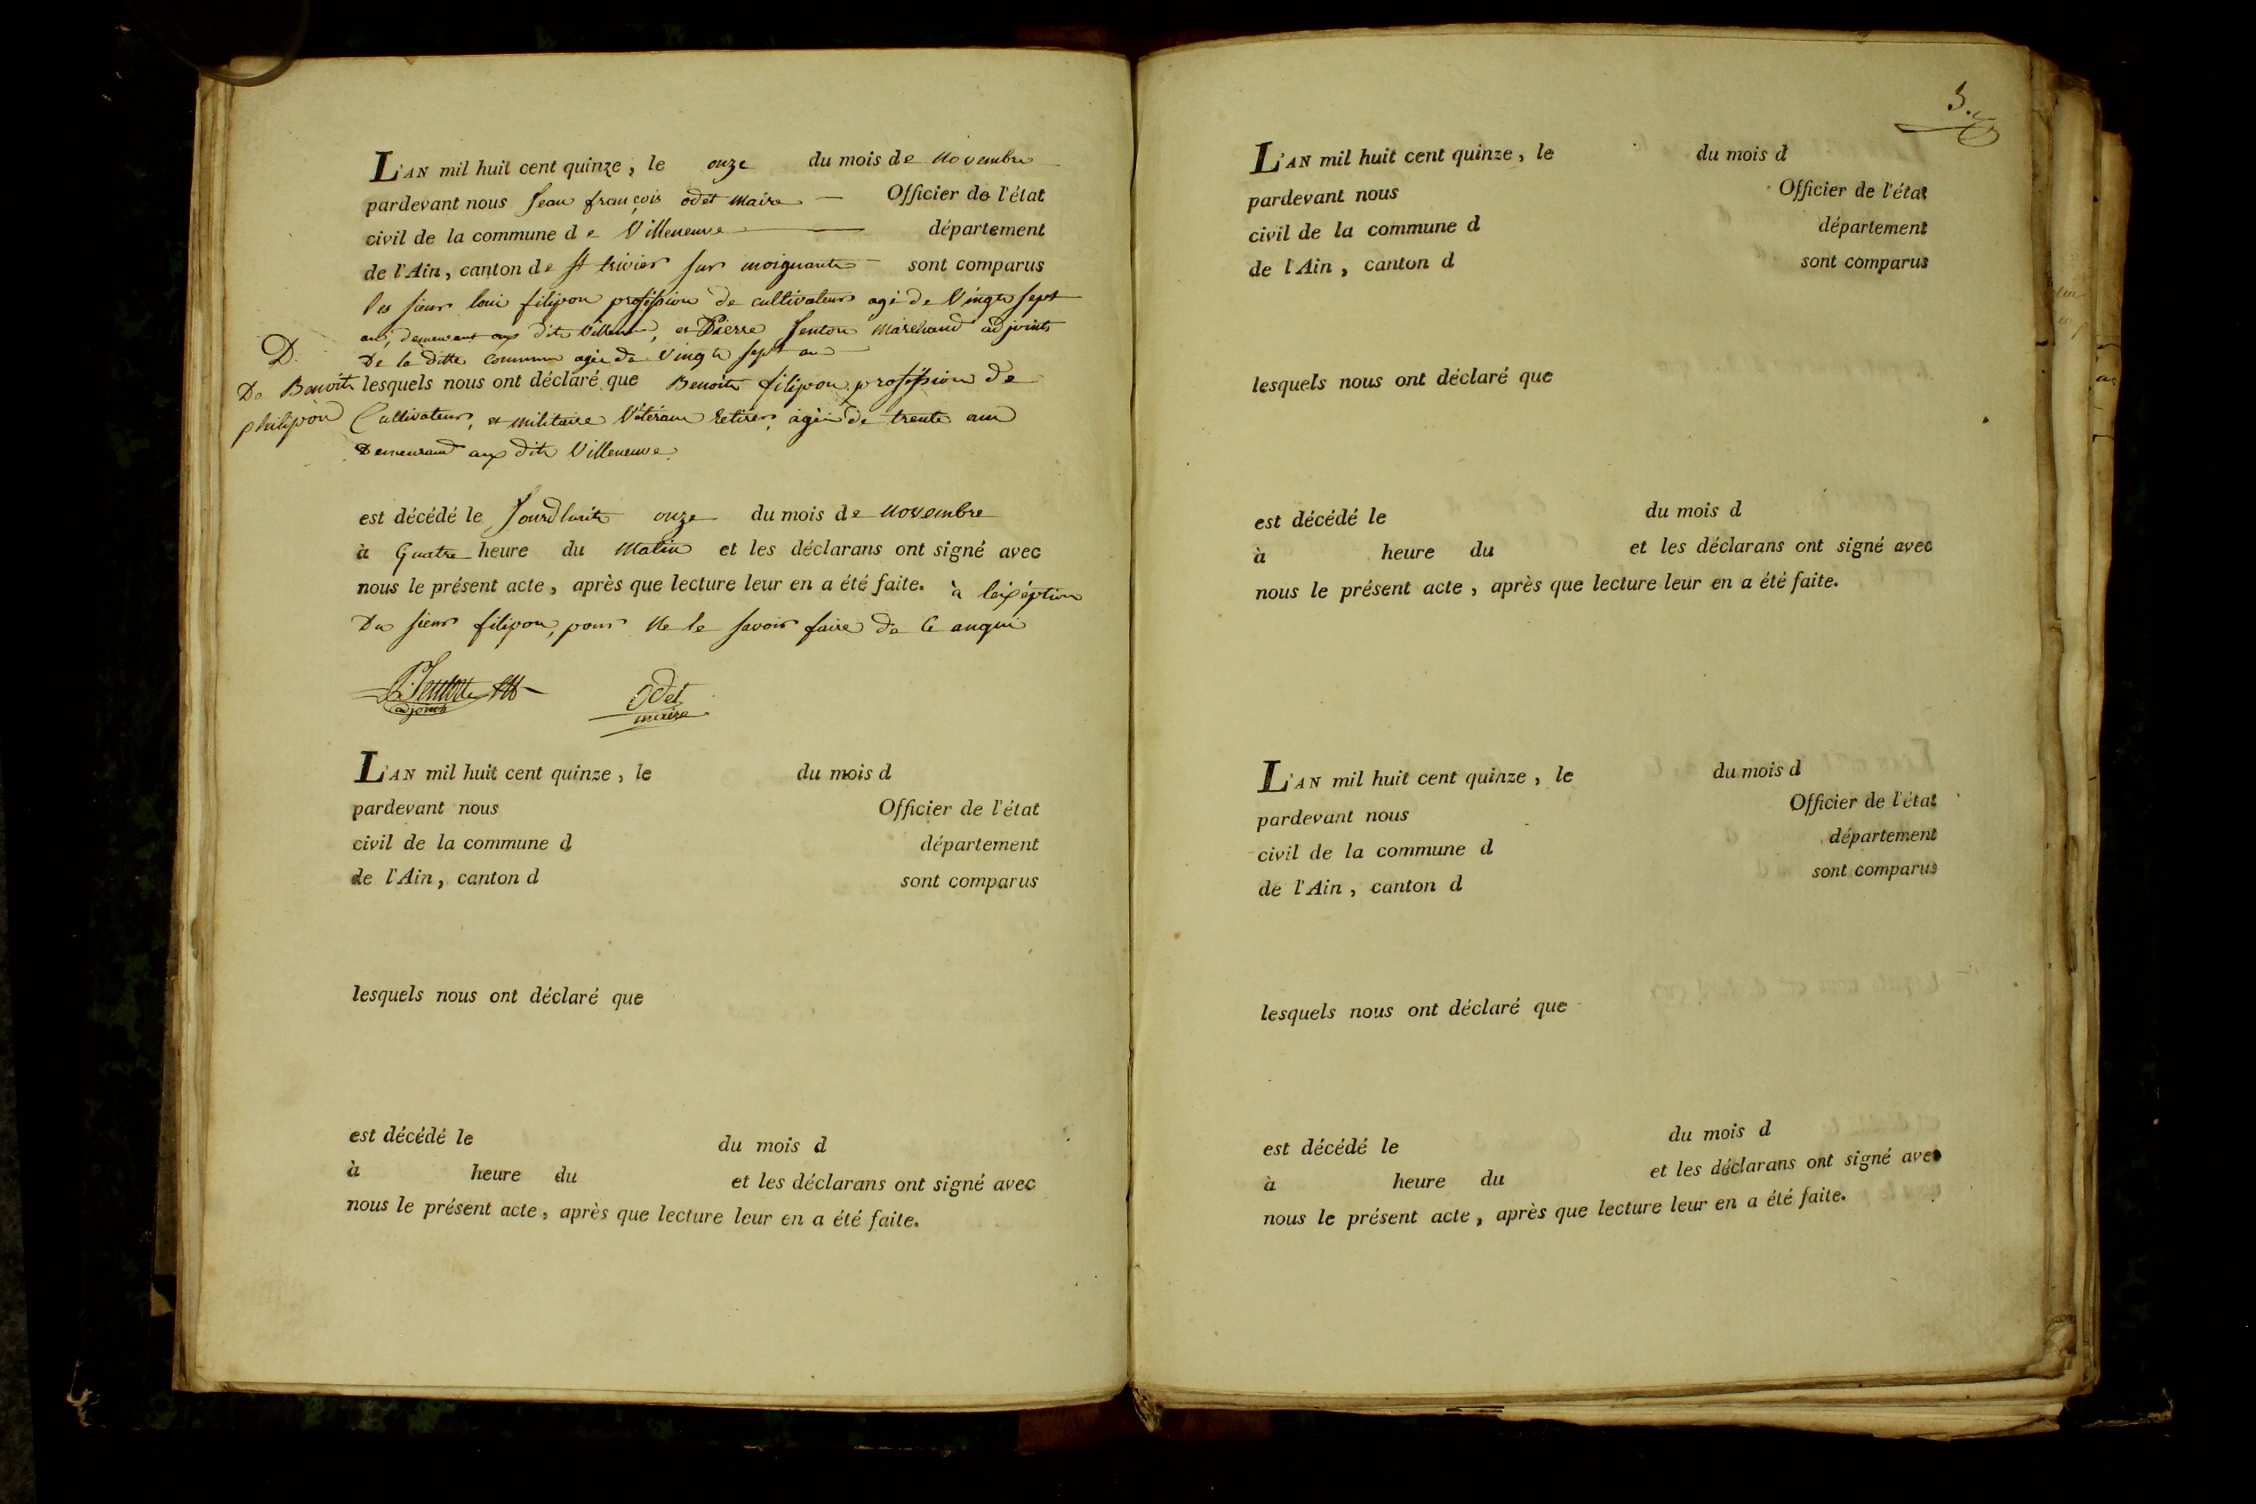 L'AN mil huit cent quinze, le onze du mois de novembre
pardevant nous Jean françois odet Maire Officier de l'état
civil de la commune de Villeneuve département
de l'Ain, canton de st trivier sur moignants sont comparus
les sieur loui filipon profession de cultivateur agé de Vingt sept
ans, demeurant aux dit Villeneuve, et Pierre Jenton Marchand adjoint
De la ditte commune agée de Vingt sept an
D.
De Benoit
philipon
lesquels nous ont déclaré que Benoite filipon profession de
Cultivateur, et militaire Vétéram Retirer, agée de trente ans
Demeurand aux dite Villeneuve
est décédé le Jourdhuit onze du mois de Novembre
à Quatre heure du Matin et les déclarans ont signé avec
nous le présent acte, après que lecture leur en a été faite. à léxéption
Du sieur filipon, pour Ne le savoir faire de Ce anqui
P. Jenton
adjoint
Odet
maire
L'AN mil huit cent quinze, le du mois d
pardevant nous Officier de l'état
civil de la commune d département
de l'Ain, canton d sont comparus
lesquels nous ont déclaré que
est décédé le du mois d
à heure du et les déclarans ont signé avec
nous le présent acte, après que lecture leur en a été faite.
5.
L'AN mil huit cent quinze, le du mois d
pardevant nous Officier de l'état
civil de la commune d département
de l'Ain, canton d sont comparus
lesquels nous ont déclaré que
est décédé le du mois d
à heure du et les déclarans ont signé avec
nous le présent acte, après que lecture leur en a été faite.
L'AN mil huit cent quinze, le du mois d
pardevant nous Officier de l'état
civil de la commune d département
de l'Ain, canton d sont comparus
lesquels nous ont déclaré que
est décédé le du mois d
à heure du et les déclarans ont signé avec
nous le présent acte, après que lecture leur en a été faite.